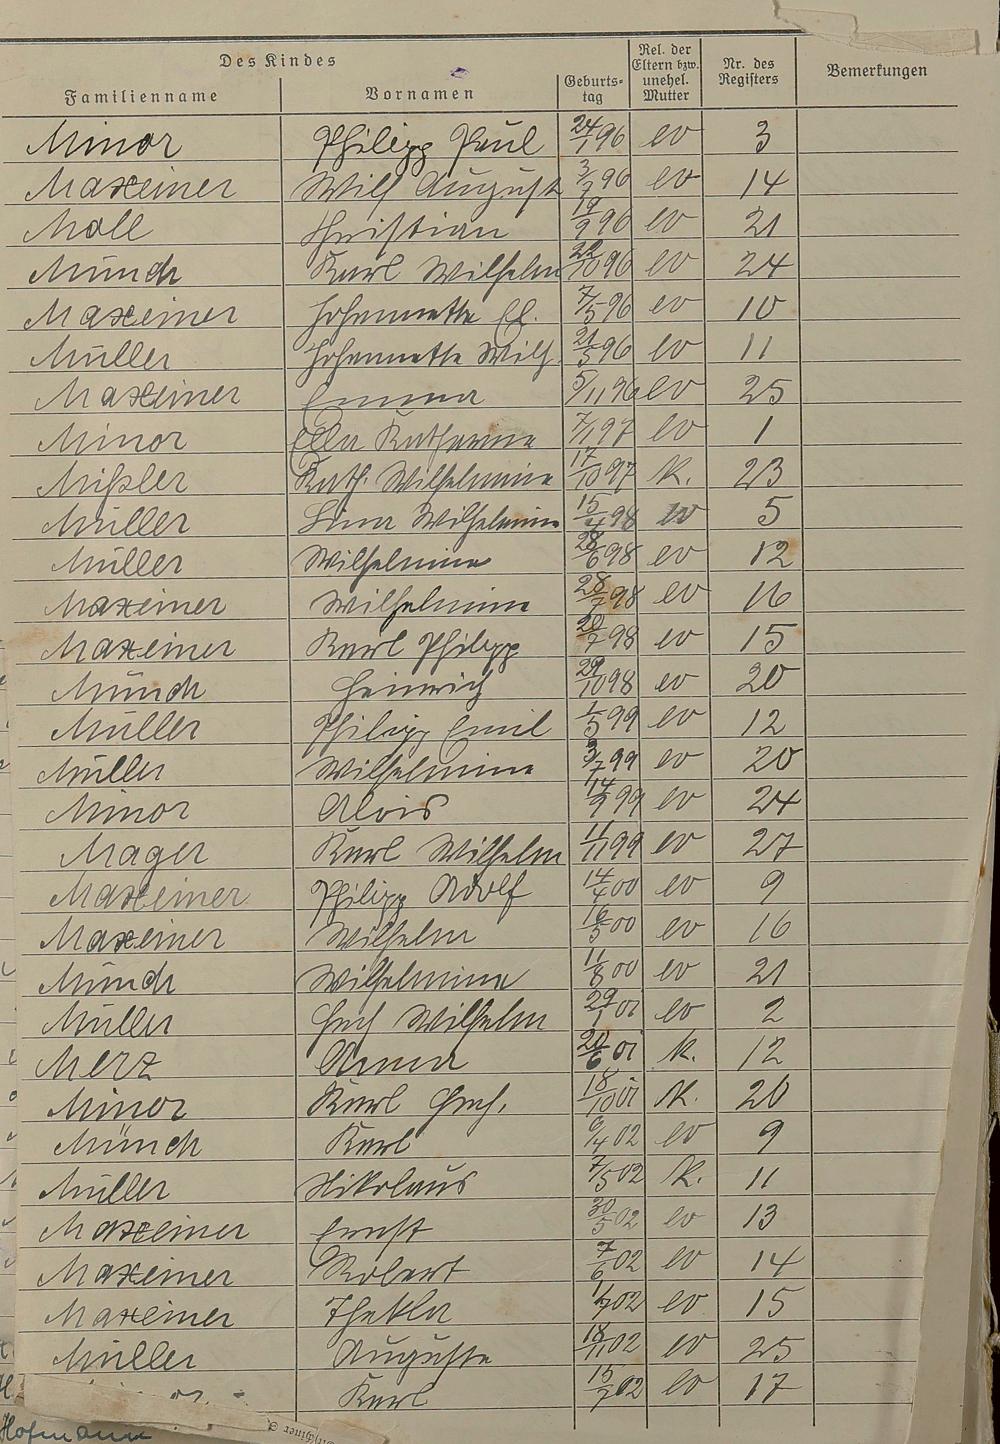 Des Kindes
Familienname | Vornamen | Geburts-tag | Rel. der Eltern bzw. unehel. Mutter | Nr. des Registers | Bemerkungen
Minor | Philipp Paul | 24/1 96 | ev | 3
Maxeiner | Wilh August | 3/7 96 | ev | 14
Moll | Christian | 19/9 96 | ev | 21
Münch | Karl Wilhelm | 22/10 96 | ev | 24
Maxeiner | Johannette El. | 7/5 96 | ev | 10
Müller | Johannette Wilh. | 21/5 96 | ev | 11
Maxeiner | Emma | 5/11 96 | ev | 25
Minor | Ella Katharine | 7/1 97 | ev | 1
Mißler | Kath. Wilhelmine | 17/10 97 | k. | 23
Müller | Lina Wilhelmine | 15/4 98 | ev | 5
Müller | Wilhelmine | 28/6 98 | ev | 12
Maxeiner | Wilhelmine | 28/7 98 | ev | 16
Maxeiner | Karl Philipp | 20/7 98 | ev | 15
Münch | Heinrich | 29/10 98 | ev | 20
Müller | Philipp Emil | 1/5 99 | ev | 12
Müller | Wilhelmine | 3/7 99 | ev | 20
Minor | Alois | 14/9 99 | ev | 24
Mager | Karl Wilhelm | 11/11 99 | ev | 27
Maxeiner | Philipp Adolf | 14/4 00 | ev | 9
Maxeiner | Wilhelm | 16/5 00 | ev | 16
Münch | Wilhelmine | 11/8 00 | ev | 21
Müller | Hch Wilhelm | 29/1 01 | ev | 2
Merz | Anna | 20/6 01 | k. | 12
Minor | Karl Hch. | 18/10 01 | k. | 20
Münch | Karl | 6/4 02 | ev | 9
Müller | Nikolaus | 7/5 02 | k. | 11
Maxeiner | Ernst | 30/5 02 | ev | 13
Maxeiner | Robert | 7/6 02 | ev | 14
Maxeiner | Thekla | 1/7 02 | ev | 15
Müller | Auguste | 18/11 02 | ev | 25
Karl | 15/7 02 | ev | 17
Hofmann